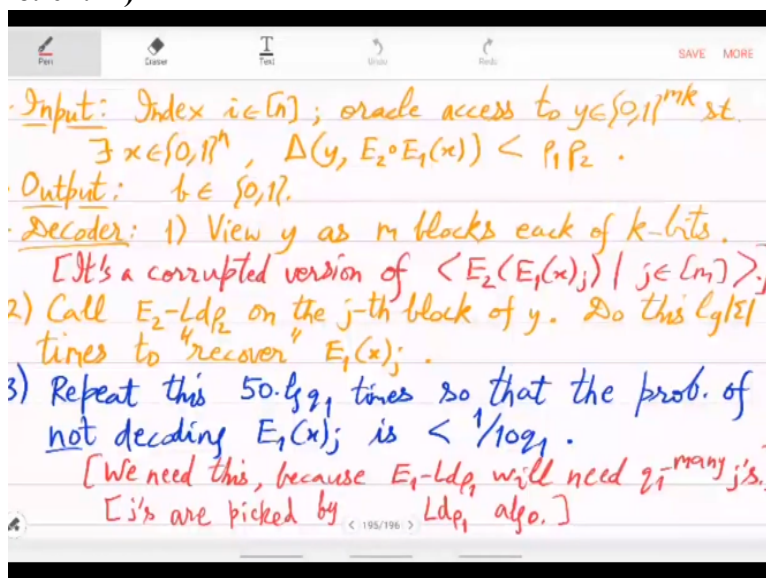 Pen Eraser Text Undo Redo SAVE MORE
Input: Index i∈[n]; oracle access to y∈{0,1}^{mk} st.
∃ x∈{0,1}^n, Δ(y, E₂∘E₁(x)) < ρ₁ρ₂.
Output: b ∈ {0,1}.
Decoder: 1) View y as m blocks each of k-bits.
[It's a corrupted version of <E₂(E₁(x)_j) | j∈[m]>.]
2) Call E₂-Ldρ₂ on the j-th block of y. Do this lg|Σ|
times to "recover" E₁(x)_j.
3) Repeat this 50.lg q₁ times so that the prob. of
not decoding E₁(x)_j is < 1/10q₁.
[We need this, because E₁-Ldρ₁ will need q₁-many j's.
[j's are picked by Ldρ₁ algo.]
< 195/196 >